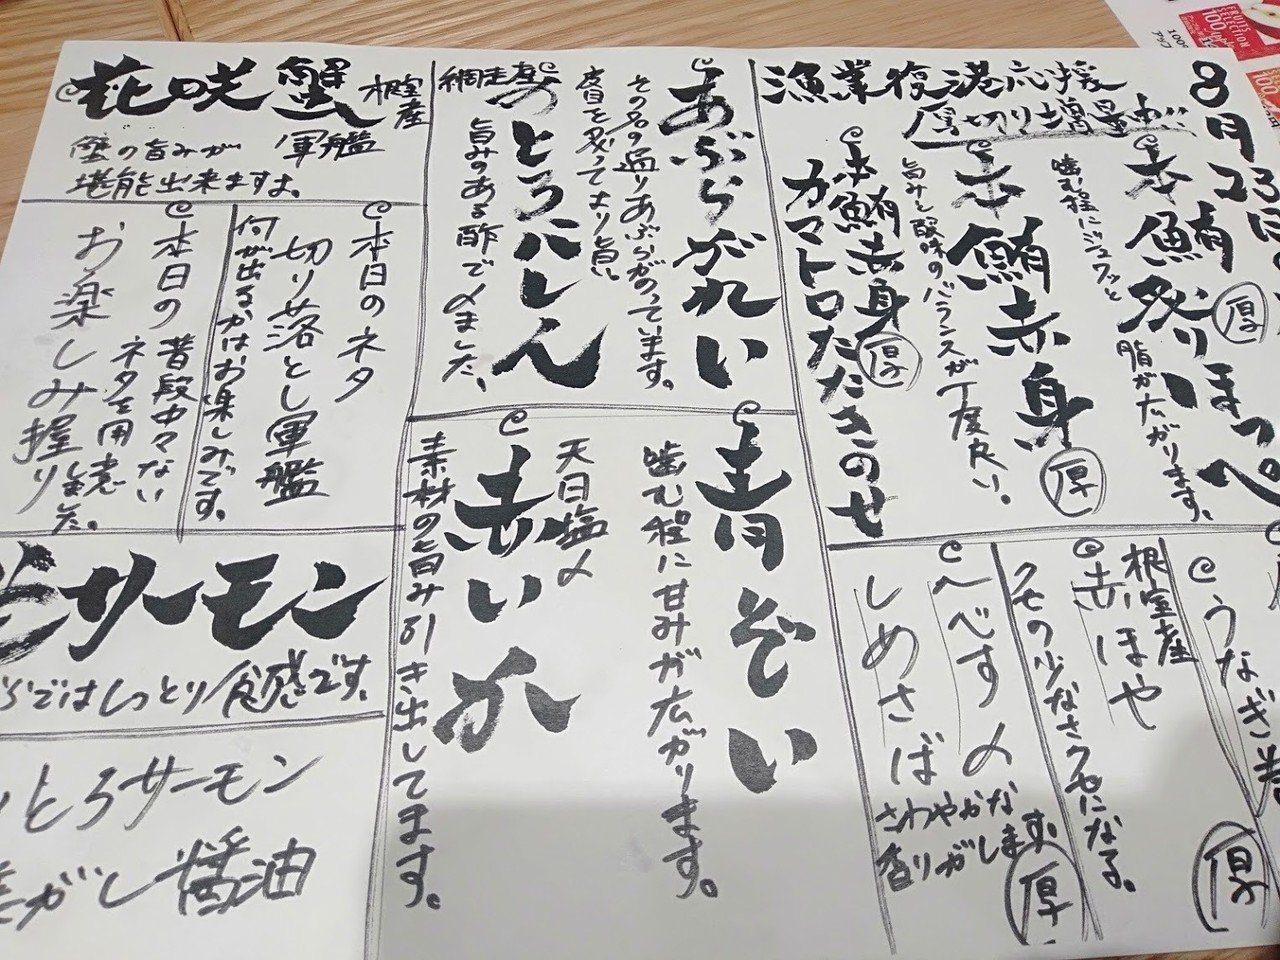 8月23日
漁業復港応援
厚切り増量
本鮪祭り
ほっぺ
厚
噛む程にジュワッと
脂が広がります。
本鮪赤身
厚
旨みと酸味のバランスが丁度良い。
本鮪赤身
厚
カマトロたたきのせ
うなぎ
厚
根室産
赤ほや
クセの少なさクセになる。
へべす〆
しめさば
さわやかな
香りがします
厚
あぶらがれい
その名の通りあぶらがのっています。
皮目を炙ってより旨い
網走産
とろにしん
旨みのある酢で〆ました。
青ぞい
噛む程に甘みが広がります。
赤いか
天日塩〆
素材の旨み引き出してます。
花咲蟹
根室産
軍艦
蟹の旨みが
堪能出来ますよ。
本日のネタ
切り落とし軍艦
何が出るかはお楽しみです。
本日の
お楽しみ握り
普段中々ない
ネタを用意
サーモン
ではしっとり食感です。
とろサーモン
焦がし醤油
FRUITS
SELECTION
100